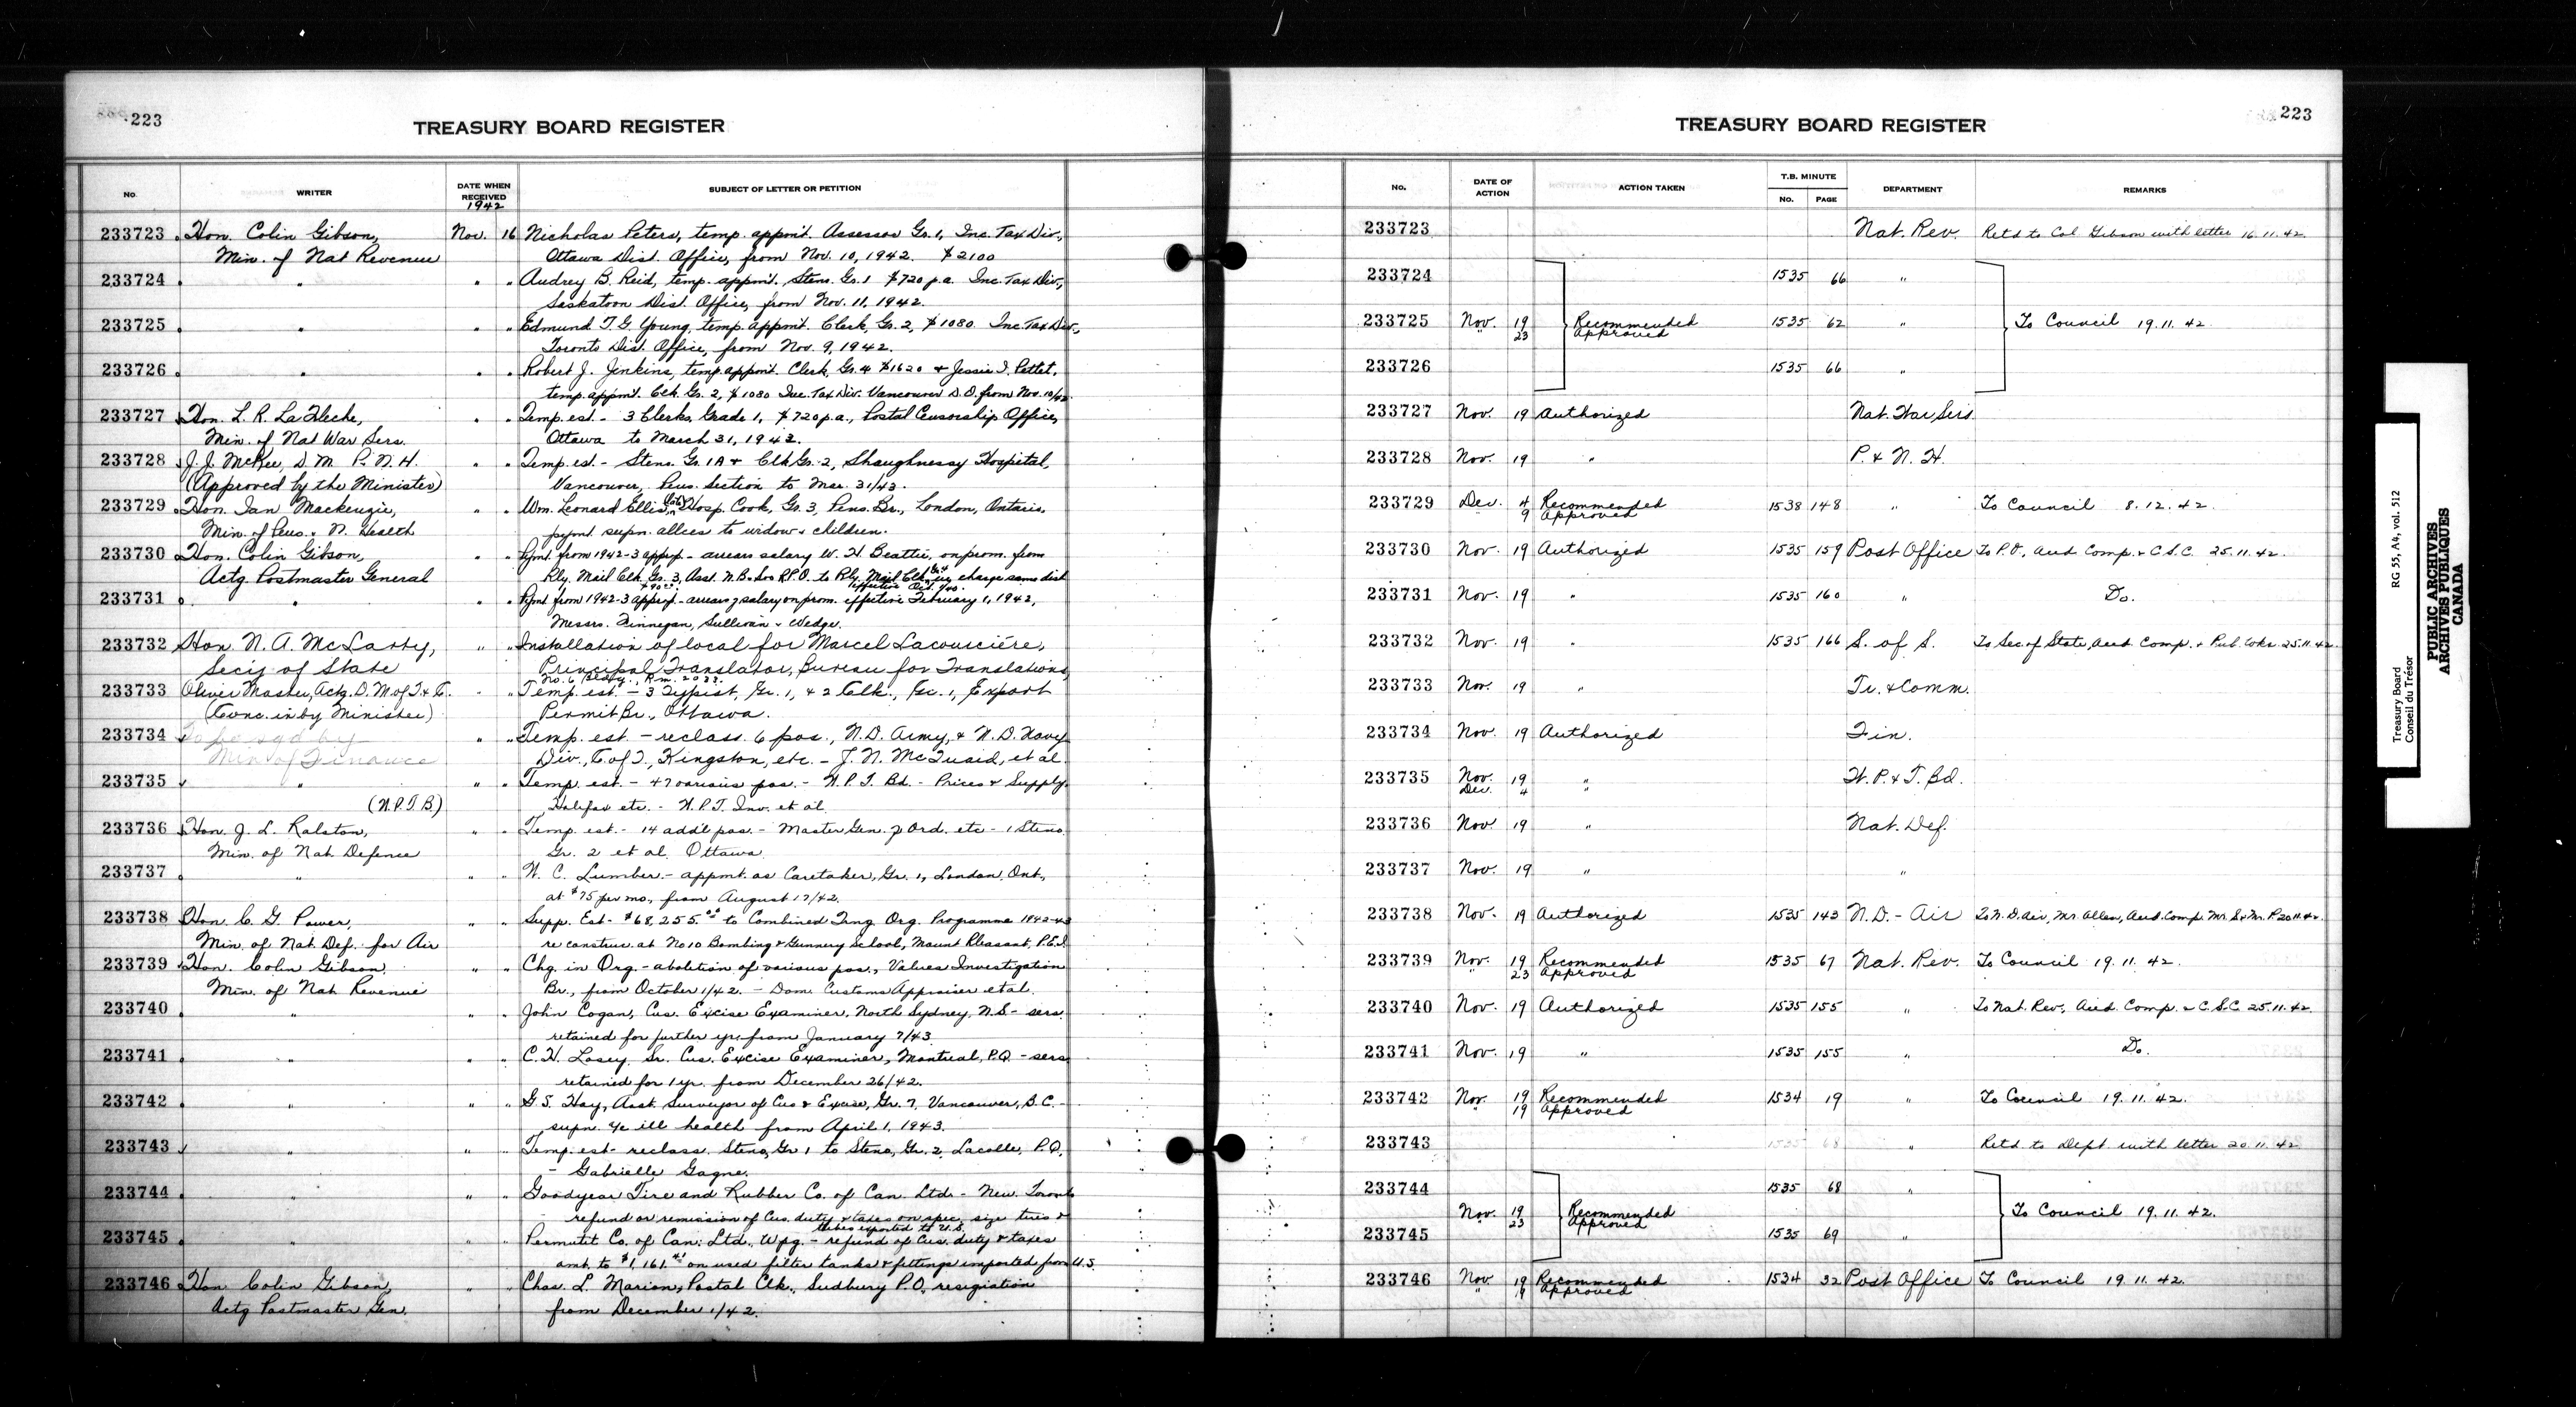 223
TREASURY BOARD REGISTER
No. WRITER DATE WHEN RECEIVED SUBJECT OF LETTER OR PETITION
1942
233723 Hon. Colin Gibson, Nov. 16 Nicholas Peters, temp. appmt. Assessor Gr. 1, Inc. Tax Div.,
Min. of Nat Revenue Ottawa Dist. Office, from Nov. 10, 1942. $2100
233724 " " " Audrey B. Reid, temp. appmt. Steno. Gr. 1 $720 p.a. Inc. Tax Div.,
Saskatoon Dist. Office, from Nov. 11, 1942.
233725 " " " Edmund T. G. Young, temp. appmt. Clerk, Gr. 2, $1080 Inc. Tax Div.,
Toronto Dist. Office, from Nov. 9, 1942.
233726 " " " Robert J. Jenkins, temp. appmt. Clerk, Gr. 4 $1620 & Jessie I. Pettet,
temp. appm't. Clk. Gr. 2, $1080 Inc. Tax Div. Vancouver D.O. from Nov. 10/42
233727 Hon. L. R. La Fleche, " " Temp. est. - 3 Clerks, Grade 1, $720 p.a., Postal Censorship Office,
Min. of Nat War Sers. Ottawa to March 31, 1943.
233728 J. J. McKee, D.M. P. N. H. " " Temp. est. - Steno. Gr. 1A & Clk Gr. 2, Shaughnessy Hospital,
(Approved by the Minister) Vancouver, Pens. Section to Mar. 31/43.
233729 Hon. Ian Mackenzie, " " Wm. Leonard Ellis, late Hosp. Cook, Gr. 3, Pens. Br., London, Ontario,
Min. of Pens. & N. Health pymt. supn. allces to widow & children.
233730 Hon. Colin Gibson, " " Pymt. from 1942-3 approp. - arrears salary W. H. Beattie, on prom. from
Actg. Postmaster General Rly. Mail Clk. Gr. 3, Asst. N.B. & Soo R.P.O. to Rly. Mail Clk Gr. 4 charge same dist
effective Oct.
233731 " " " Pymt from 1942-3 approp. - arrears of salary on prom. effective February 1, 1942,
Messrs. Finnegan, Sullivan & Wedge.
233732 Hon N. A. McLarty, " " Installation of local for Marcel Lacourcière,
Sec'y of State Principal Translator, Bureau for Translations,
No. 6 Bldg., Rm. 2033.
233733 Oliver Master, Actg. D. M. of T. & C. " " Temp. est. - 3 Typist, Gr. 1, & 2 Clk., Gr. 1, Export
(Conc. in by Minister) Permit Br., Ottawa.
233734 To be sgd by " " Temp. est - reclass. 6 pos., N.D. Army, & N.D. Navy
Min of Finance Div., C of T., Kingston, etc. - J. N. McQuaid, et al.
233735 " " " Temp. est. - 47 various pos. - W.P.T. Bd. - Prices & Supply,
(W.P.T.B.) Halifax etc. - W.P.T. Inv. et al
233736 Hon. J. L. Ralston, " " Temp. est. - 14 add'l pos. - Master Gen. of Ord. etc - 1 Steno.
Min. of Nat. Defence Gr. 2 et al. Ottawa.
233737 " " " W. C. Lumber - appmt. as Caretaker, Gr. 1, London, Ont.,
at $75 per mo., from August 17/42.
233738 Hon. C. G. Power, " " Supp. Est - $68,255.00 to Combined Tng. Org. Programme 1942-43
Min. of Nat. Def. for Air re construc. at No 10 Bombing & Gunnery School, Mount Pleasant, P.E.I.
233739 Hon. Colin Gibson, " " Chg. in Org. - abolition of various pos., Values Investigation
Min. of Nat Revenue Br., from October 1/42. - Dom. Customs Appraiser et al.
233740 " " " John Cogan, Cus. Excise Examiner, North Sydney, N.S. - sers.
retained for further yr. from January 7/43.
233741 " " " C. H. Losey, Sr. Cus. Excise Examiner, Montreal, P.Q. - sers
retained for 1 yr. from December 26/42.
233742 " " " G. S. Hay, Asst. Surveyor of Cus & Excise, Gr. 7, Vancouver, B.C. -
supn. a/c ill health from April 1, 1943.
233743 " " " Temp. est - reclass. Steno, Gr 1 to Steno, Gr. 2, Lacolle, P.Q.
- Gabrielle Gagne.
233744 " " " Goodyear Tire and Rubber Co. of Can. Ltd. - New Toronto
refund or remission of Cus. duty & taxes on spec. size tires &
tubes exported to U.S.
233745 " " " Permutit Co. of Can. Ltd., Wpg. - refund of Cus. duty & taxes
amt. to $1,161. on used filter tanks & fittings imported from U.S.
233746 Hon Colin Gibson, " " Chas. L. Marion, Postal Clk., Sudbury P.O. resignation
Actg Postmaster Gen. from December 1/42.
223
TREASURY BOARD REGISTER
No. DATE OF ACTION ACTION TAKEN T.B. MINUTE DEPARTMENT REMARKS
No. PAGE
233723 Nat. Rev. Ret'd to Col Gibson with letter 16.11.42.
233724 1535 66 "
233725 Nov. 19 Recommended 1535 62 " To Council 19.11.42.
" 23 Approved
233726 1535 66 "
233727 Nov. 19 Authorized Nat. War Sers.
233728 Nov. 19 " P. & N. H.
233729 Dec. 4 Recommended 1538 148 " To Council 8.12.42.
9 Approved
233730 Nov. 19 Authorized 1535 159 Post Office To P.O., Aud Comp. & C.S.C. 25.11.42.
233731 Nov. 19 " 1535 160 " Do.
233732 Nov. 19 " 1535 166 S. of S. To Sec. of State, Aud. Comp. & Pub. Wks. 25.11.42.
233733 Nov. 19 " Tr. & Comm.
233734 Nov. 19 Authorized Fin.
233735 Nov. 19 " W. P. & T. Bd.
Dec. 4 "
233736 Nov. 19 " Nat. Def.
233737 Nov. 19 " "
233738 Nov. 19 Authorized 1535 143 N.D. - Air To N.D. Air, Mr. Allen, Aud. Comp. Mr. S & Mr. P. 20.11.42.
233739 Nov. 19 Recommended 1535 67 Nat. Rev. To Council 19.11.42.
" 23 Approved
233740 Nov. 19 Authorized 1535 155 " To Nat. Rev., Aud. Comp. & C.S.C. 25.11.42.
233741 Nov. 19 " 1535 155 " Do.
233742 Nov. 19 Recommended 1534 19 " To Council 19.11.42.
" 19 Approved
233743 1535 68 " Ret'd to Dept. with letter 20.11.42
233744 1535 68 "
Nov. 19 Recommended To Council 19.11.42.
" 23 Approved
233745 1535 69 "
233746 Nov 19 Recommended 1534 32 Post Office To Council 19.11.42.
" Approved
Treasury Board RG 55, A4, vol. 512
Conseil du Trésor
PUBLIC ARCHIVES
ARCHIVES PUBLIQUES
CANADA